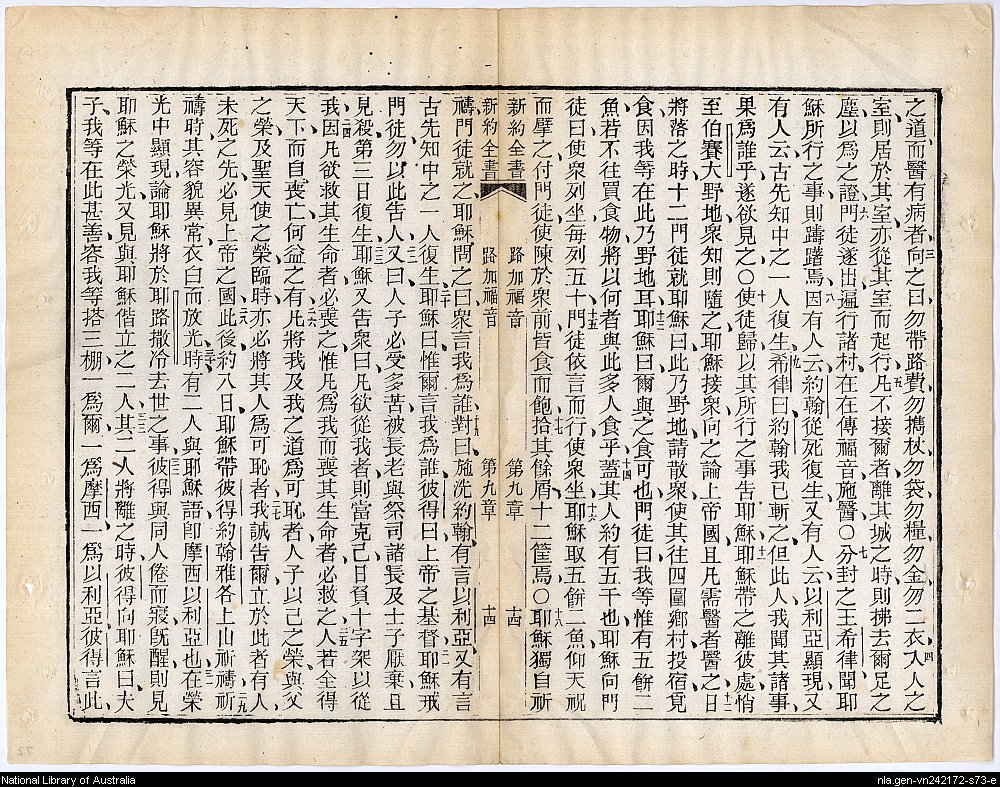 之道而醫有病者向之曰勿帶路費勿攜杖勿袋勿糧勿金勿二衣入人之
三
四
室則居於其室亦從其室而起行凡不接爾者離其城之時則拂去爾足之
五
塵以爲之證門徒遂出遍行諸村在在傳福音施醫○分封之王希律聞耶
六
七
穌所行之事則躊躇焉因有人云約翰從死復生又有人云以利亞顯現又
八
有人云古先知中之一人復生希律曰約翰我已斬之但此人我聞其諸事
九
果爲誰乎遂欲見之○使徒歸以其所行之事告耶穌耶穌帶之離彼處悄
十
十一
至伯賽大野地衆知則隨之耶穌接衆向之論上帝國且凡需醫者醫之日
十二
將落之時十二門徒就耶穌曰此乃野地請散衆使其往四圍鄉村投宿覓
食因我等在此乃野地耳耶穌曰爾與之食可也門徒曰我等惟有五餅二
十三
魚若不往買食物將以何者與此多人食乎蓋其人約有五千也耶穌向門
十四
徒曰使衆列坐每列五十門徒依言而行使衆坐耶穌取五餅二魚仰天祝
十五
十六
而擘之付門徒使陳於衆前皆食而飽拾其餘屑十二筐焉○耶穌獨自祈
十七
十八
新約全書 路加福音 第九章 十四
新約全書 路加福音 第九章 十四
禱門徒就之耶穌問之曰衆言我爲誰對曰施洗約翰有言以利亞又有言
十九
古先知中之一人復生耶穌曰惟爾言我爲誰彼得曰上帝之基督耶穌戒
二十
二一
門徒勿以此告人又曰人子必受多苦被長老與祭司諸長及士子厭棄且
二二
見殺第三日復生耶穌又告衆曰凡欲從我者則當克己日負十字架以從
二三
我因凡欲救其生命者必喪之惟凡爲我而喪其生命者必救之人若全得
二四
二五
天下而自喪亡何益之有凡將我及我之道爲可恥者人子以己之榮與父
二六
之榮及聖天使之榮臨時亦必將其人爲可恥者我誠告爾立於此者有人
二七
未死之先必見上帝之國此後約八日耶穌帶彼得約翰雅各上山祈禱祈
二八
二九
禱時其容貌異常衣白而放光時有二人與耶穌語卽摩西以利亞也在榮
三十
三一
光中顯現論耶穌將於耶路撒冷去世之事彼得與同人倦而寢旣醒則見
三二
耶穌之榮光又見與耶穌偕立之二人其二人將離之時彼得向耶穌曰夫
三三
子我等在此甚善容我等搭三棚一爲爾一爲摩西一爲以利亞彼得言此
72
National Library of Australia
nla.gen-vn242172-s73-e